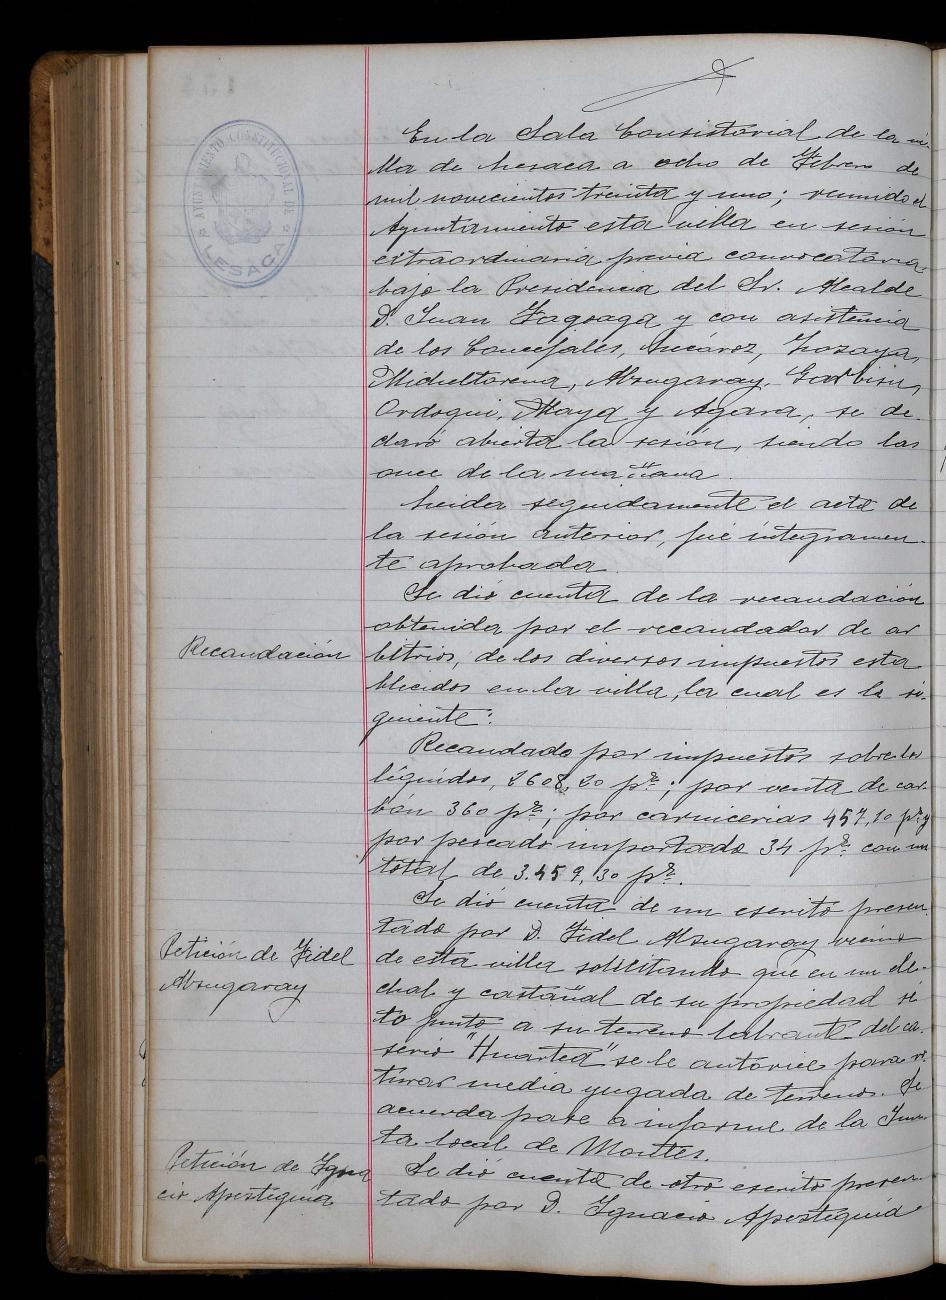 AYUNTAMIENTO CONSTITUCIONAL DE
LESACA
En la Sala Consistorial de la vi-
lla de Lesaca a ocho de Febrero de
mil novecientos treinta y uno; reunido el
Ayuntamiento esta villa en sesión
extraordinaria previa convocatoria,
bajo la Presidencia del Sr. Alcalde
D. Juan Fagoaga y con asistencia
de los Concejales, Lozaya,
Micheltorena, Alzugaray, Garbisu,
Ordoqui, Maya y Agara, se de-
claró abierta la sesión, siendo las
once de la mañana.
Leida seguidamente el acta de
la sesión anterior, fué integramen-
te aprobada.
Se dió cuenta de la recaudación
obtenida por el recaudador de ar
Recaudación
bitrios, de los diversos impuestos esta
blecidos en la villa, la cual es la si-
guiente:
Recaudado por impuestos sobre los
líquidos, 2608,20 pts; por venta de car-
bón 360 pts; por carnicerias 457,10 pts y
por pescado importado 34 pts con un
total de 3.459,30 pts.
Se dió cuenta de un escrito presen-
tado por D. Fidel Alzugaray vecino
Petición de Fidel
Alzugaray
de esta villa solilitando que en un ele-
chal y castañal de su propiedad si
to junto a su terreno labrante del ca-
serio "Huartea" se le autorice para ro
turar media yugada de terrenos. Se
acuerda pase a informe de la Jun-
ta local de Montes.
Petición de Igna
cio Apesteguia
Se dió cuenta de otro escrito presen-
tado por D. Ignacio Apesteguia